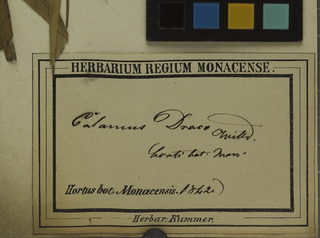 HERBARIUM REGIUM MONACENSE.
Calamus Draco Willd.
horti bot. Mon.
Hortus bot. Monacensis. 1842.
Herbar. Kummer.